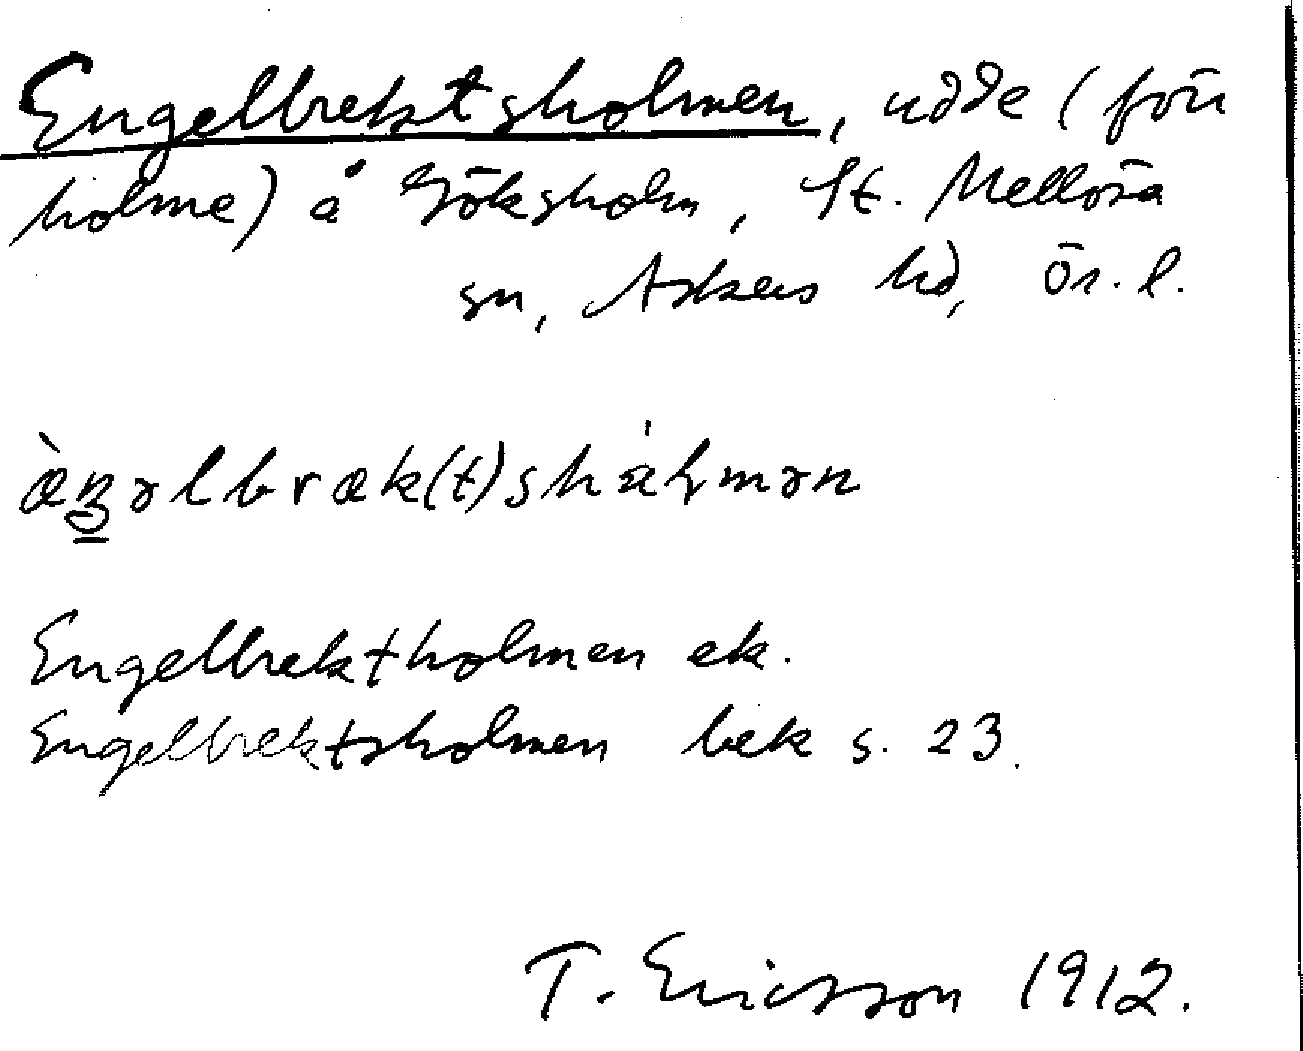 Engelbrektsholmen, udde (förr
holme) å Göksholm, St. Mellösa
sn, Askers hd, Ör. l.
æ̀ŋəlbræk(t)shàl̥mən
Engelbrektholmen ek.
Engelbrektsholmen bek s. 23.
T. Ericsson 1912.